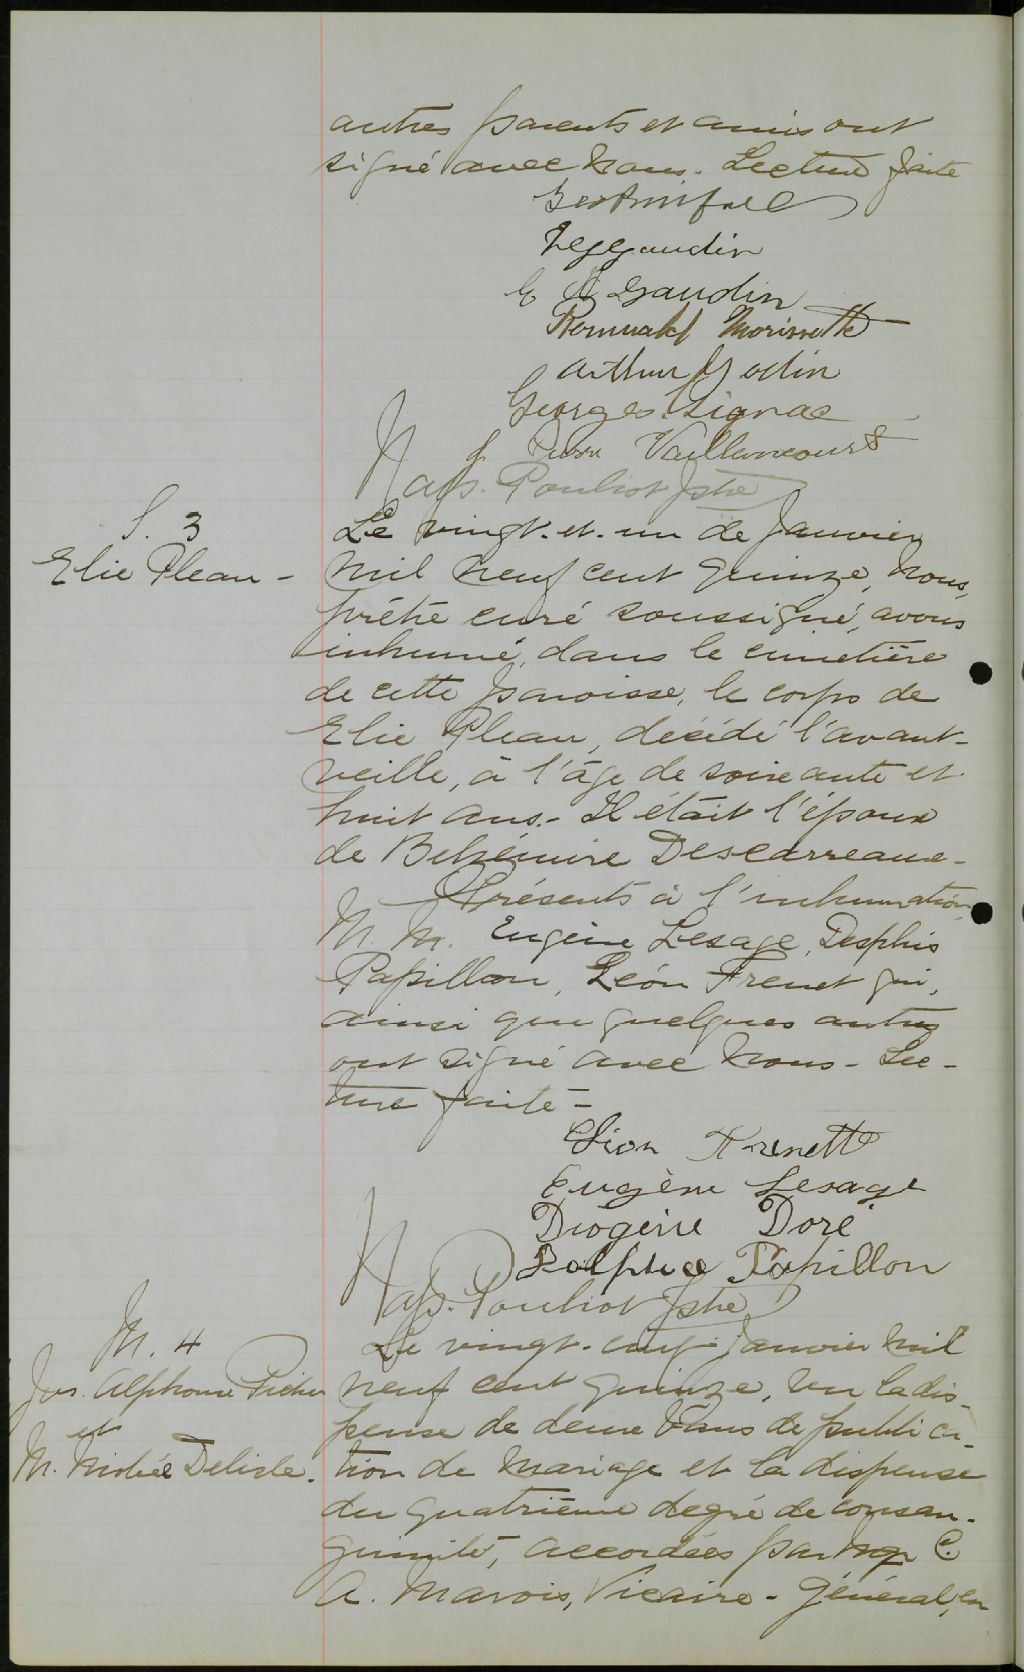 autres parents et amis ont
signé avec nous. Lecture faite
Gaudin
Gaudin
Romuald Morissette
Arthur Godin
Georges Lignac
Vaillancourt
Nap. Pouliot Ptre
S. 3
Elie Pleau -
Le vingt-et-un de Janvier
mil neuf cent quinze, nous,
prêtre curé soussigné, avons
inhumé, dans le cimetière
de cette paroisse, le corps de
Elie Pleau, décédé l'avant-
veille, à l'âge de soixante et
huit ans.- Il était l'époux
de Belzémire Descarreaux.
Présents à l'inhumation,
M. M. Eugène Lesage, Delphis
Papillon, Léon Frenet qui,
ainsi que quelques autres
ont signé avec nous - Lec-
ture faite -
Léon Frenette
Eugène Lesage
Diogène Doré
Papillon
Nap. Pouliot Ptre
M. 4
Jos. Alphonse Picher
et
M. Délisle.
Le vingt-cinq Janvier mil
neuf cent quinze, vu la dis-
pense de deux bans de publica-
tion de mariage et la dispense
du quatrième degré de consan-
guinité, accordées par Mgr C.
A. Marois, Vicaire-Général, en